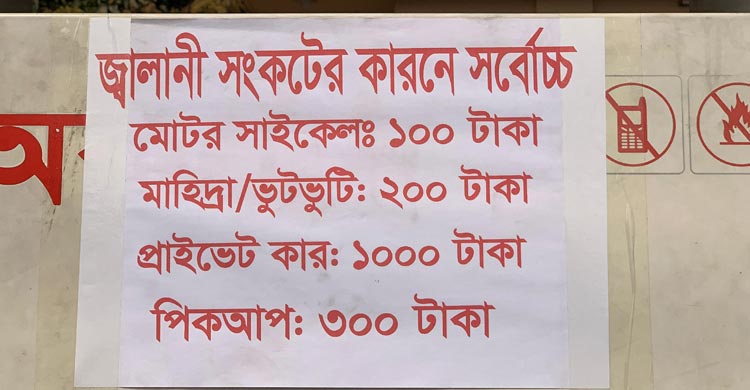 জ্বালানী সংকটের কারনে সর্বোচ্চ
মোটর সাইকেলঃ ১০০ টাকা
মাহিদ্রা/ভুটভুটি: ২০০ টাকা
প্রাইভেট কার: ১০০০ টাকা
পিকআপ: ৩০০ টাকা